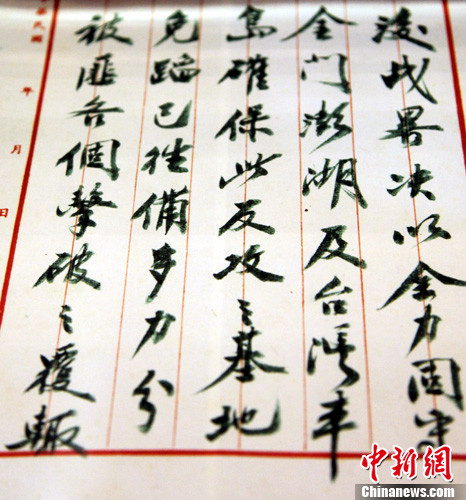 决以全力固守
金門澎湖及台湾本
島確保此反攻之基地
免蹈已往備多力分
被匪各個擊破之覆轍
民國 年 月 日
中新网
Chinanews.com